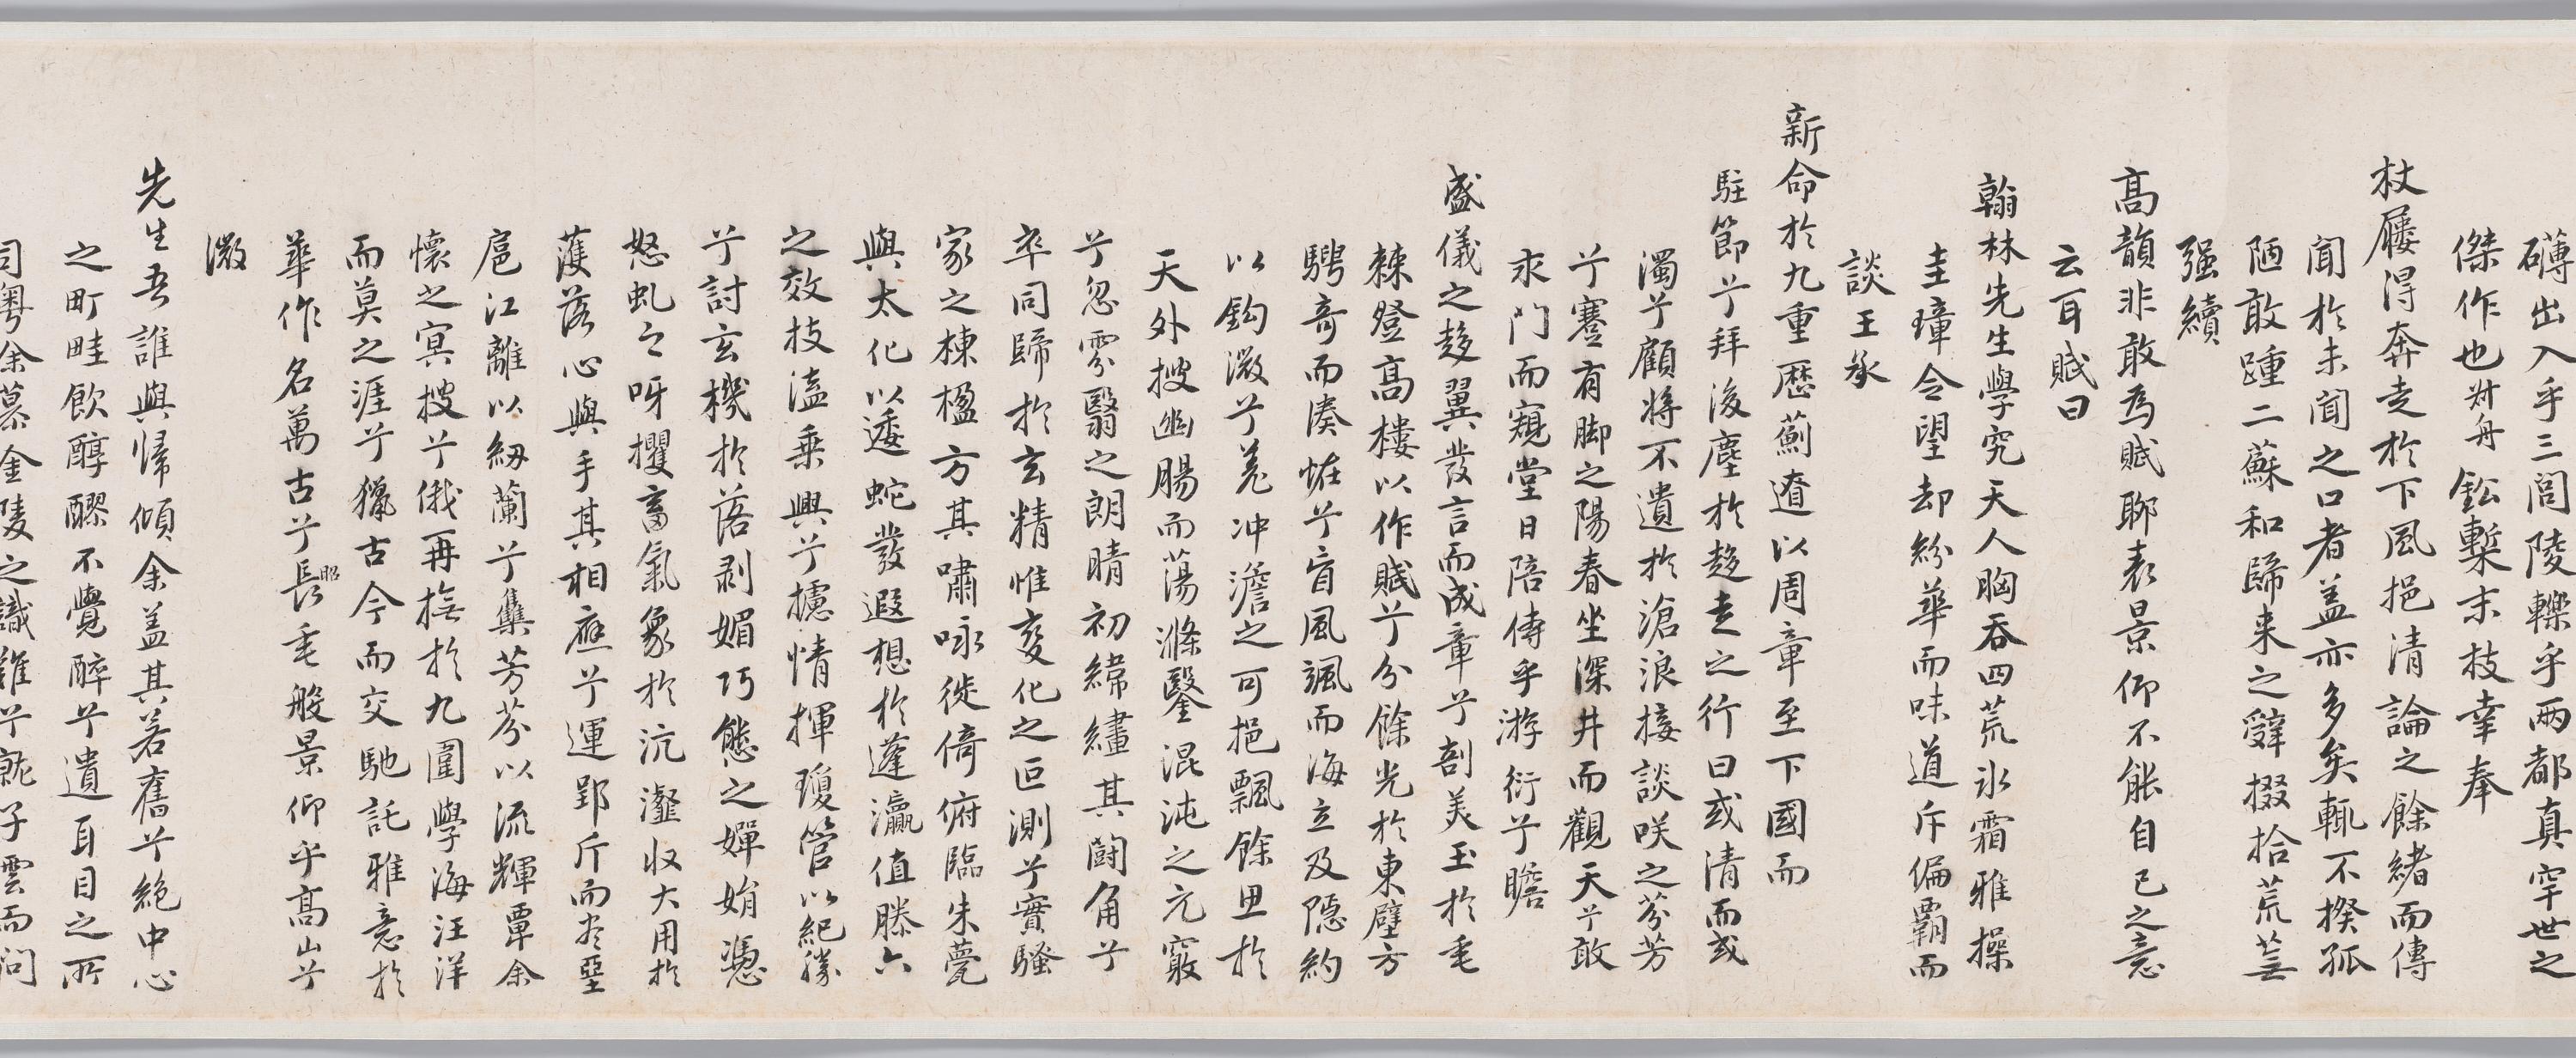 礴出入乎三閭陵轢乎兩都真罕世之
傑作也叔舟鈆槧末枝幸奉
杖屨得奔走於下風挹清論之餘緒而傳
聞於未聞之口者盖亦多矣輒不揆孤
陋敢踵二蘇和歸来之辭掇拾荒蕪
强續
高韻非敢為賦聊表景仰不能自已之意
云耳賦曰
翰林先生學究天人胸吞四荒氷霜雅操
圭璋令望却紛華而味道斥偏霸而
談王承
新命於九重歷薊遼以周章至下國而
駐節兮拜後塵於趍走之行曰或清而或
濁兮顧將不遺於滄浪接談咲之芬芳
兮蹇有脚之陽春坐深井而觀天兮敢
求門而窺堂日陪侍乎游衍兮瞻
盛儀之趍翼發言而成章兮剖美玉於毫
棘登高樓以作賦兮分餘光於東壁方
騁奇而湊恠兮盲風颯而海立及隱約
以鈎微兮羌冲澹之可挹飄餘思於
天外搜幽腸而蕩滌鑿混沌之元竅
兮忽雾翳之朗晴初緯繣其鬪角兮
卒同歸於玄精惟變化之叵測兮實騷
家之棟楹方其嘯咏徙倚俯臨朱甍
與太化以逶蛇發遐想於蓬瀛值滕六
之效技溘乗興兮攄情揮瓊管以紀勝
兮討玄機於落剥媚巧態之嬋娟憑
怒虬之呀攫畜氣象於沆瀣収大用於
濩落心與手其相應兮運郢斤而盡堊
扈江離以紉蘭兮集芳芬以流輝覃余
懷之冥搜兮俄再撫於九圍學海汪洋
而莫之涯兮獵古今而交馳託雅意於
華作名萬古兮長昭毫般景仰乎高山兮
微
先生吾誰與歸傾余盖其若舊兮絶中心
之町畦飲醇醪不覺醉兮遺耳目之所
司粤余慕金陵之識難兮就子雲而问